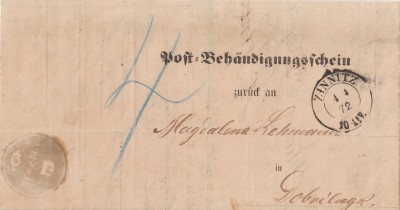 4
Post-Behändigungsschein
zurück an
ZINNITZ
4 4
72
10-11V.
Magdalena Lehmann
in
Dobrilugk.